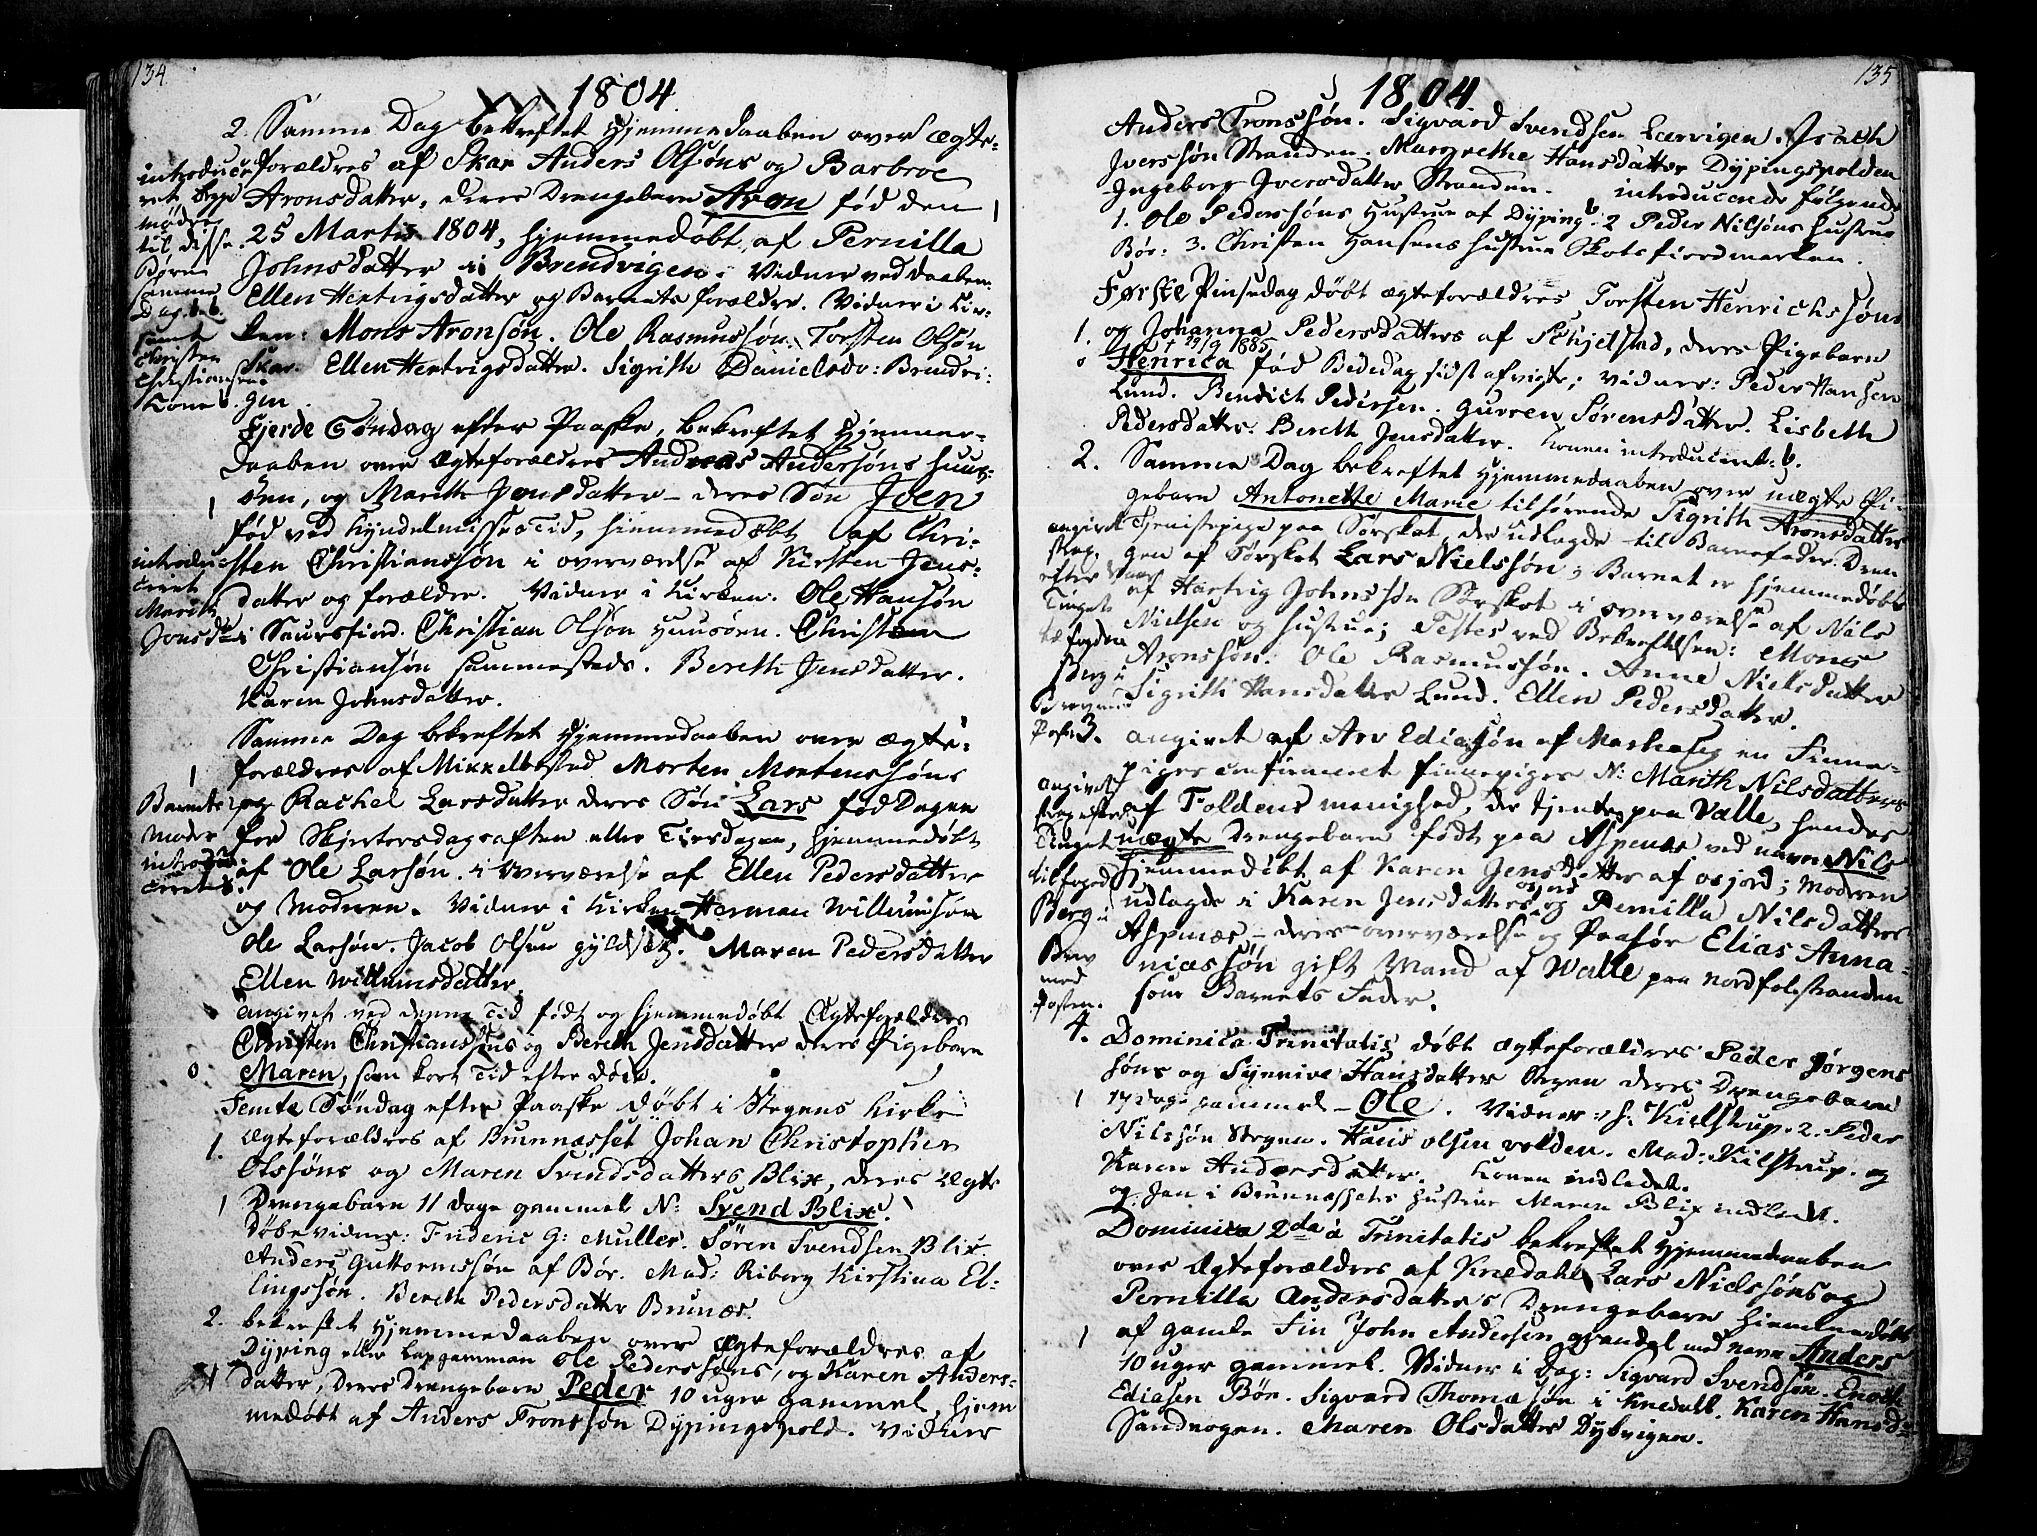 134
1804
2. Samme Dag bekreftet Hjemmedaaben over Ægte-
forældres af Skar Anders Olsøns og Barbroe
Aronsdatter, deres Drengebarn Aron fød den
25 Martis 1804, hjemmedøbt af Pernilla
Johnsdatter i Brendvigen. Vidner ved daaben
Ellen Hentrigsdatter og Barnets forældre. Vidner i Kir-
ken: Mons Aronsøn. Ole Rasmussøn. Torsten Olsøn
Skar. Ellen Hentrigsdatter. Sigrith Danielsdr: Brendvi-
gen.
introduce-
ret
mødre
til disse
Børn
samme
Dag
samt
Christen
Christiansens
Kone
Fjerde Søndag efter Paaske, bekreftet Hjemme-
daaben over Ægteforældres Andreas Andersøns Huus-
øen, og Marith Jonsdatter deres Søn Joen
1
fød ved Kyndelmisses Tid, hjemmedøbt af Chri-
sten Christianssøn i overværelse af Kirsten Jens-
datter og forældre. Vidner i Kirken. Ole Hansøn
i Saursfiord. Christian Olsøn Huusøen. Christen
Christiansøn sammesteds. Bereth Jensdatter.
Karen Johnsdatter.
introdu-
ceret
Marith
Jonsda
Samme Dag bekreftet Hjemmedaaben over Ægte-
forældres af Mikkelbostad Morten Mortenssøns
1
og Rachel Larsdatter deres Søn Lars fød Dagen
for Skjertorsdagsaften eller Tirsdagen, hjemmedøbt
af Ole Larsøn. i Overværelse af Ellen Pedersdatter
og Moderen. Vidner i Kirken Herman Willumsøn
Ole Larsøn. Jacob Olsen Gyldset. Maren Pedersdatter
Ellen Willumsdatter.
Barnets
Moder
introdu-
ceret
Angivet ved denne Tid født og hjemmedøbt Ægteforældres
Christen Christianssøns og Bereth Jensdatter deres Pigebarn
0 Maren, som kort Tid efter døde.
Femte Søndag efter Paaske døbt i Stegens Kirke
1. Ægteforældres af Brunnæsset Johan Christopher
Olssøns og Maren Svendsdatters Blix, deres Ægte
1 Drengebarn 11 Dage gammel N: Svend Blix.
Døbevidner: Frideric G: Muller. Søren Svendsen Blix.
Anders Guttormssøn af Bør. Mad: Riborg Kirstina El-
lingssøn. Bereth Pedersdatter Brunæs.
2. bekreftet Hjemmedaaben over Ægteforældres af
Dyping eller Lapgamman Ole Pederssøns, og Karen Anders-
1 datter, deres Drengebarn Peder 10 uger gammel, hjem
medøbt af Anders Tronssøn Dypingspold. Vidner
135
1804
Anders Tronssøn. Sigvard Svendsen Larvigen. Isach
Iverssøn Stranden. Margrethe Hansdatter Dypingspolden
Ingeborg Iversdatter Stranden. introducerede følgende
1. Ole Pederssøns Hustrue af Dyping. 2 Peder Nilsøns Hustrue
Bør: 3. Christen Hansens Hustrue Skotsfiordmarken.
Første Pinsedag døbt Ægteforældres Torsten Henrichssøns
1. og Johanna Pedersdatters af Schjelstad, deres Pigebarn
† 29/9 1885
0 Henrica fød Bededag sidst afvigte; Vidner: Peder Hansen
Lund. Bendich Pedersen. Gurren Sørensdatter. Lisbeth
Pedersdatter. Bereth Jensdatter. Konen introduceret.
2. Samme Dag bekreftet Hjemmedaaben over uægte Pi-
gebarn Antonette Marie tilhørende Sigrith Aronsdatter
Tjenistepige paa Sørskot, der udlagde til Barnefader Dren
gen af Sørskot Lars Nielssøn; Barnet er hjemmedøbt
af Hartvig Johnssøn Sørskot i overværelse af Nils
Nielsen og Hustrue; Testes ved Bekreftelsen: Mons
Aronssøn. Ole Rasmussøn. Anne Nielsdatter
Sigrith Hansdatter Lund. Ellen Pedersdatter.
angivet
strax
efter
Tinget
til fogden
Berg i
Brev med
Posten
3. angivet af Arv Ediassøn af en Finne-
piges confirmeret finnepiges N: Marith Nilsdatters
af Foldens menighed, der tjente paa Valle, hendes
uægte Drengebarn født paa Aspenes ved navn Nils
hjemmedøbt af Karen Jensdatter af osjord; Moderen
udlagde i Karen Jensdatters osjord og Pernilla Nilsdatters
Aspenæs deres overværelse og Paahør Elias Anna-
niassøn gift Mand af Walle paa Nordfoldstranden
som Barnets Fader.
angivet
strax efter
Tinget
til foged
Berg i
Brev
med
Posten.
4. Dominica Trinitatis døbt Ægteforældres Peder Jørgens
søns og Synnive Hansdatter Stegen deres Drengebarn
1 17 Dage gammel Ole. Vidner: H. Kielstrup. 2. Peder
Nilssøn Stegen. Hans Olsen volden. Mad: Kielstrup. og
Karen Andersdatter. Konen indledet.
og Jen i Brunnæssets Hustrue Maren Blix indledt.
Dominica 2da á Trinitatis bekreftet Hjemmedaaben
over Ægteforældres af Knedahl Lars Nielssøns og
Pernilla Andersdatters Drengebarn Hjemmedøbt
1 af gamle Fin John Andersen grandal med navn Anders
10 uger gammel. Vidner i Dag: Sigvard Svendsøn. Enoch
Ediasen Bør. Sigvard Thomæsøn i Knedall. Karen Hansd:
Sandnogen. Maren Olsdatter Dybvigen.